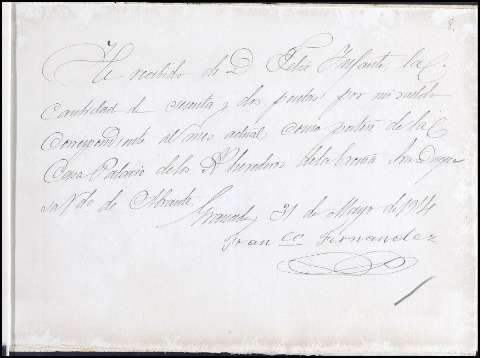 8.
He recibido de D. Felix Infante, la
cantidad de sesenta y dos pesetas por mi sueldo
correspondiente al mes actual como portero de la
Casa Palacio de los Sres herederos de la Excma Sra Duque
sa Vda de Abrantes.
Granada 31 de Mayo de 1914
Franco Fernandez